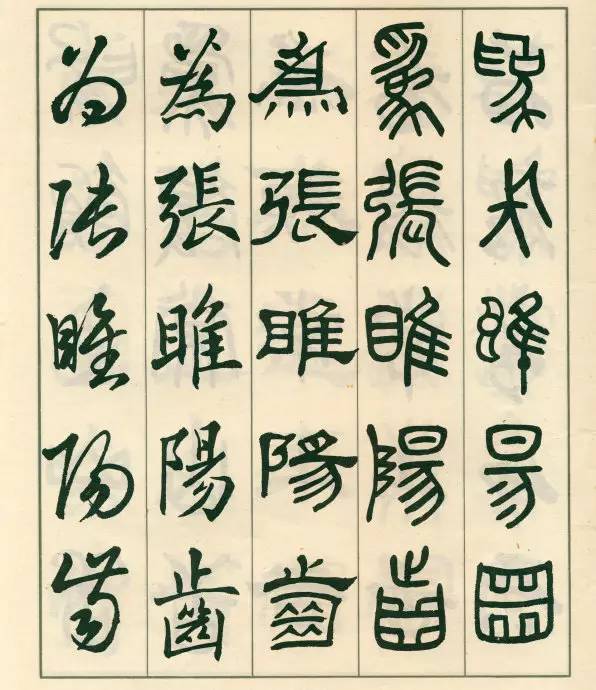 為睢昜齒
為張睢陽齒
為張睢陽齒
為張睢陽齒
為張睢陽齒